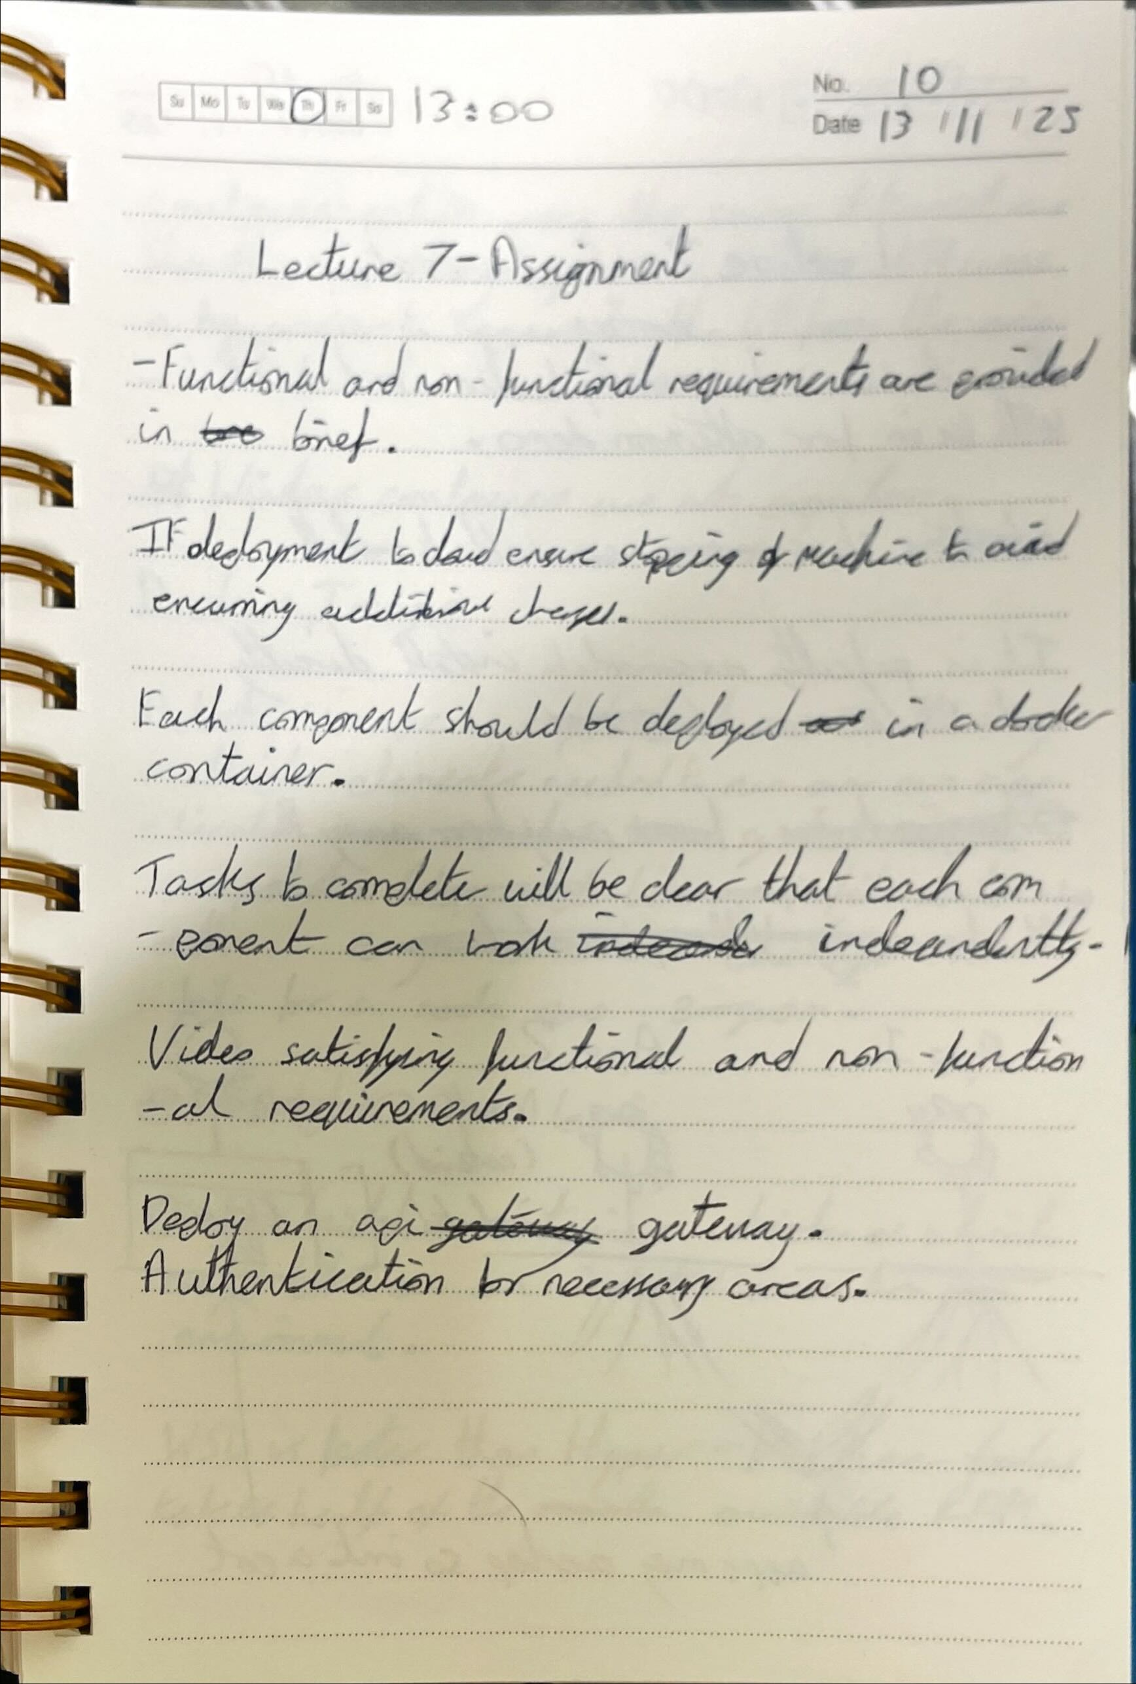 Su Mo Tu We Th Fr Sa 13:00
No. 10
Date 13 / 11 / 25
Lecture 7 - Assignment
- Functional and non-functional requirements are provided
in brief.
If deployment to cloud ensure stopping of machine to avoid
encurring additional charges.
Each component should be deployed in a docker
container.
Tasks to complete will be clear that each com
-ponent can work independently.
Video satisfying functional and non-function
-al requirements.
Deploy an api gateway.
Authentication for necessary areas.